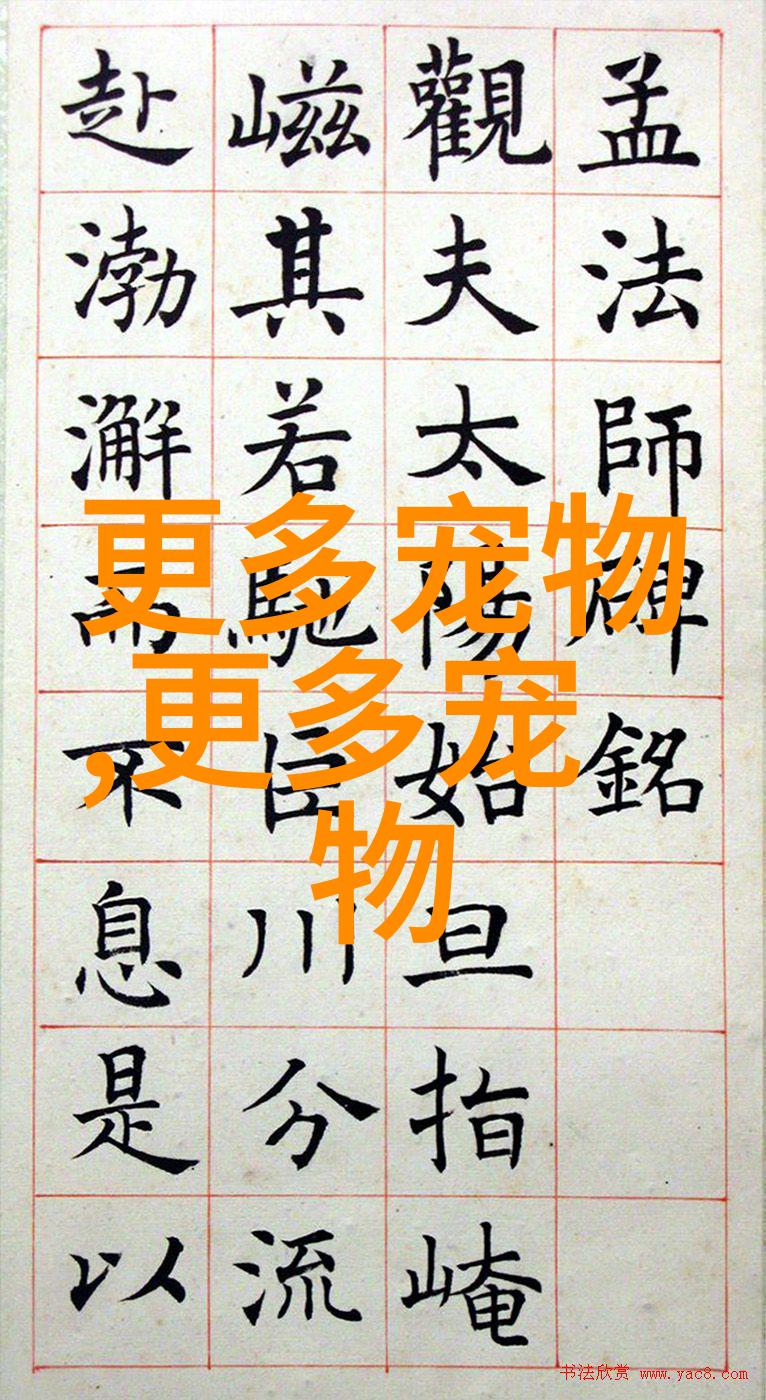 孟法師碑銘
觀夫太陽始旦指崦
嵫其若馳巨川分流
赴渤澥而不息是以
更多宠物
,更多宠
物
书法欣赏 www.yac8.com